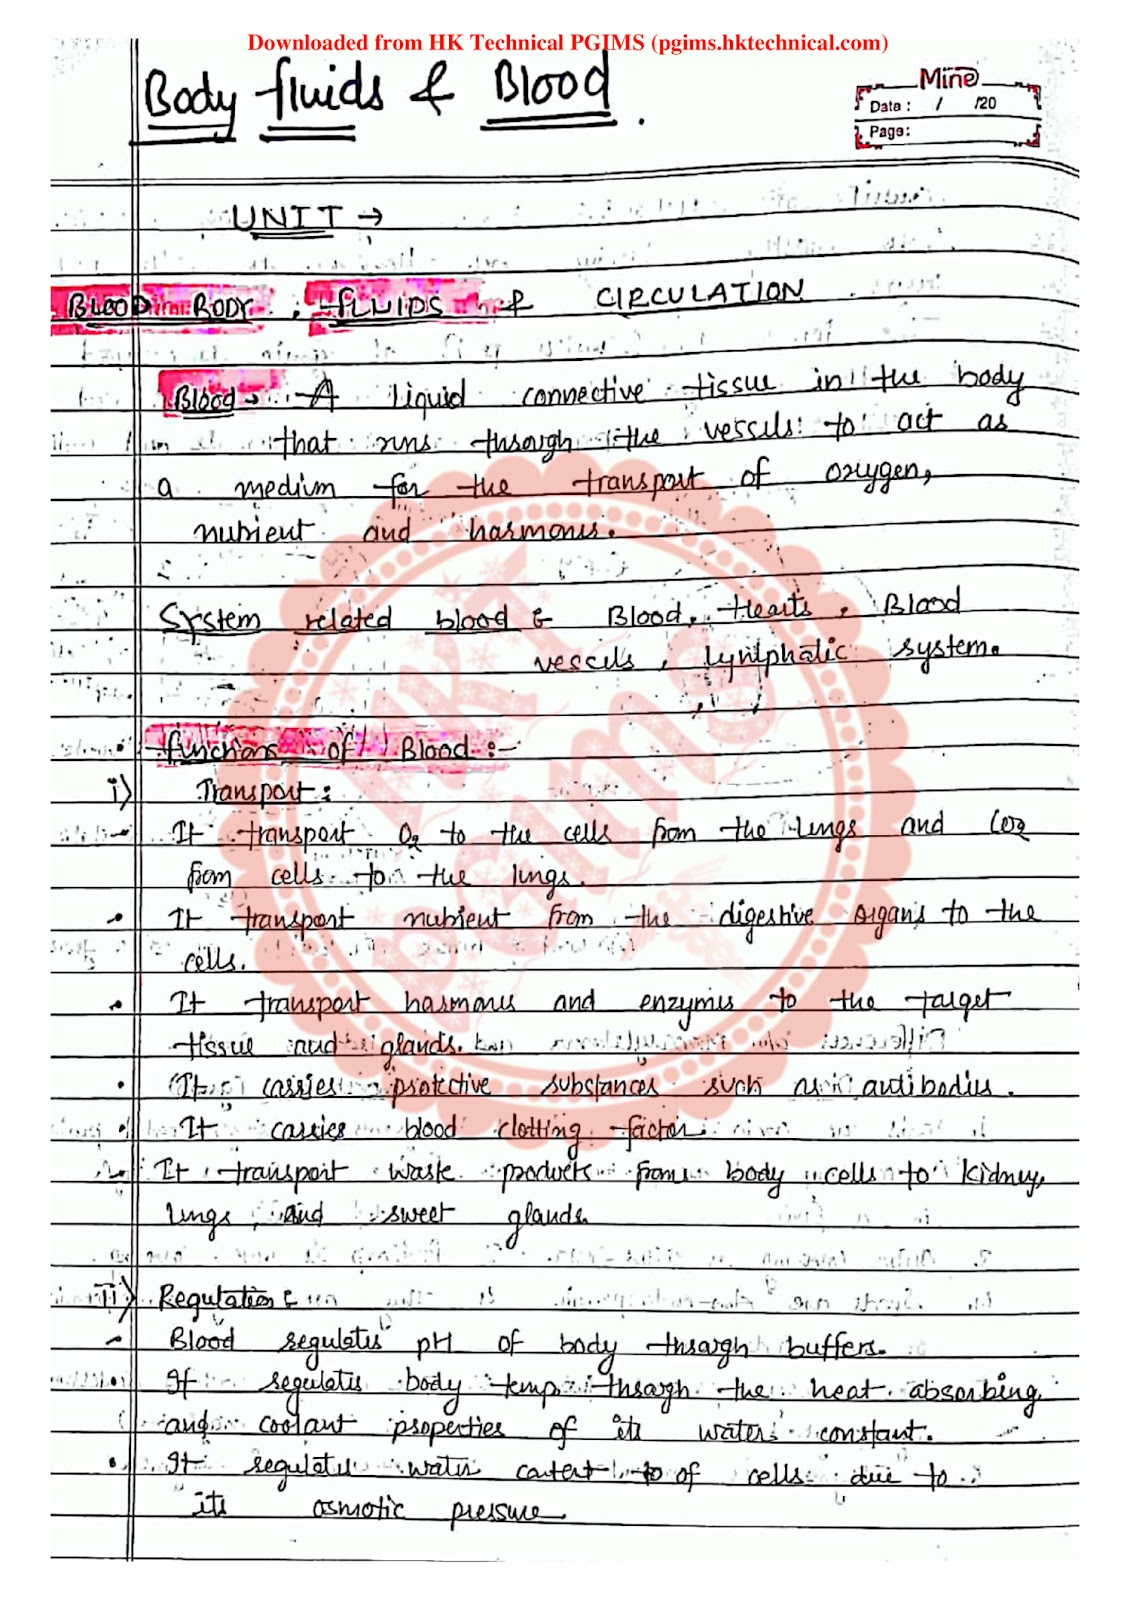 Downloaded from HK Technical PGIMS (pgims.hktechnical.com)
Body fluids & Blood.
Mine
Date : / /20
Page:
UNIT →
BLOOD BODY, FLUIDS & CIRCULATION
Blood → A liquid connective tissue in the body
that runs through the vessels to act as
a medium for the transport of oxygen,
nutrient and harmones.
System related blood : Blood, Hearts, Blood
vessels, lymphatic system.
functions of Blood :-
i) Transport :
- It transport O2 to the cells from the lungs and CO2
from cells to the lungs.
• It transport nutrient from the digestive organs to the
cells.
• It transport harmones and enzymes to the target
tissue and glands.
• It carries protective substances such as antibodies.
• It carries blood clotting factor
It transport waste products from body cells to kidney,
lungs, and sweet glands.
ii) Regulation :
- Blood regulates pH of body through buffers.
• It regulates body temp through the heat absorbing
and coolant properties of its water constant.
• It regulate water content to of cells due to
its osmotic pressure
HK
pgims